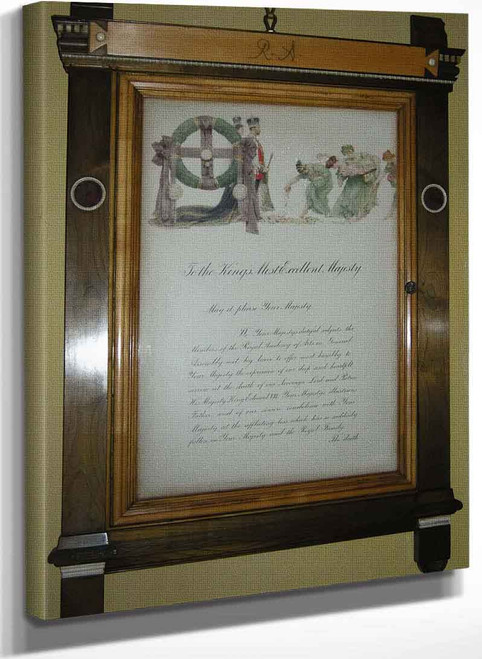 R·A·
To the King's Most Excellent Majesty
May it please Your Majesty.
We Your Majesty's dutiful subjects the
Members of the Royal Academy of Arts in General
Assembly met beg leave to offer most humbly to
Your Majesty the expression of our deep and heartfelt
sorrow at the death of our Sovereign Lord and Patron
His Majesty King Edward VII. Your Majesty's illustrious
Father, and of our sincere condolence with Your
Majesty at the afflicting loss which has so suddenly
fallen on Your Majesty and the Royal Family.